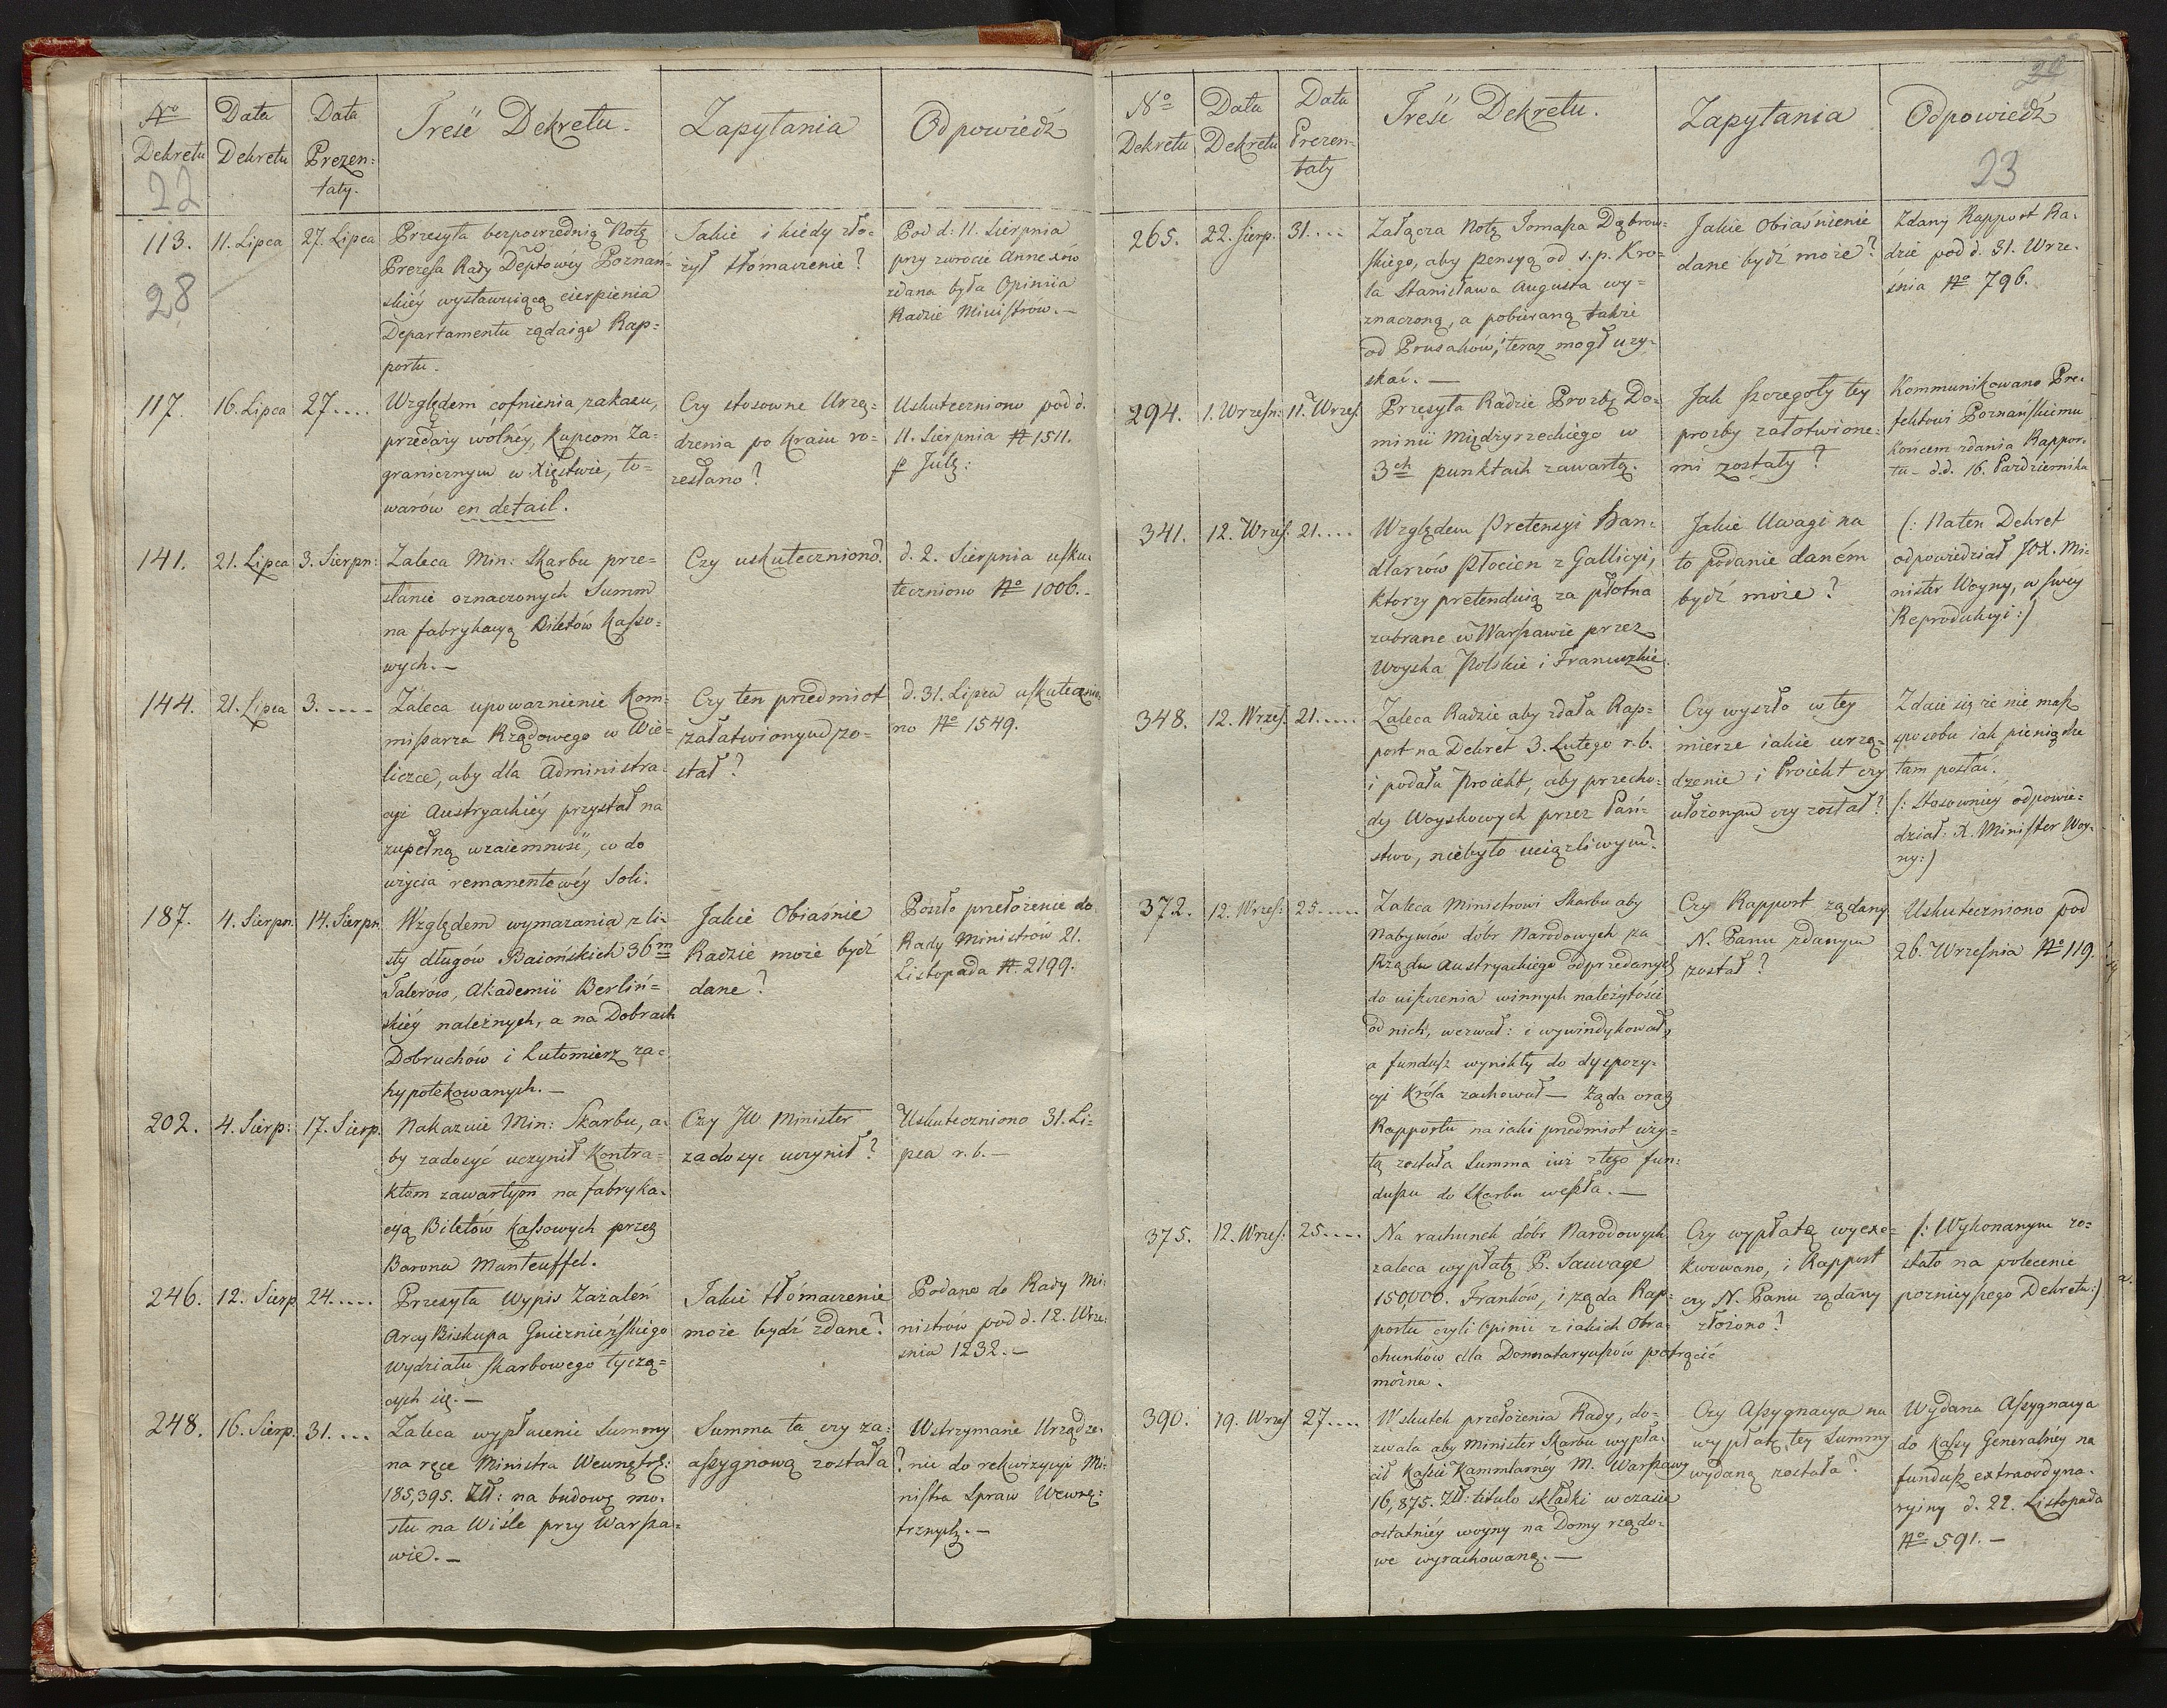 No Dekretu
Data Dekretu
Data Prezen: taty.
Treść Dekretu.
Zapytania
Odpowiedź
22
28
113. 11. Lipca 27. Lipca
Przesyła bezposrzednią Notę
Prezesa Rady Deptowéy Poznań-
skiéy wystawuiącą cierpienia
Departamentu rządaiąc Rap=
portu.
Jakie i kiedy zło-
żył tłómaczenie?
Pod d. 11. Sierpnia
przy zwrocie Annexów
zdana była Opiniia
Radzie Ministrów.-
117. 16. Lipca 27....
Względem cofnienia zakazu,
przedaży wolnéy, Kupcom Za-
granicznym w Xięstwie, to=
warów en detail.
Czy stosowne Urzą-
dzenia po Kraiu ro-
zesłano?
Uskuteczniono pod d.
11. Sierpnia No 1511.
141. 21. Lipca 3. Sierpn:
Zaleca Min: Skarbu prze-
słanie oznaczonych Summ
na fabrykacyą Biletów Kasso-
wych.-
Czy uskuteczniono?
d. 2. Sierpnia usku-
teczniono No 1006.-
144. 21. Lipca 3.----
Zaleca upoważnienie Kom-
missarza Rządowego w Wie-
liczce, aby dla Administra-
cyi Austryackiéy przystał na
zupełną wzaiemność, co do
użycia remanentowéy Soli.
Czy ten przedmiot
załatwionym zo-
stał?
d. 31. Lipca uskutecznio-
no No 1549.
187. 4. Sierpn. 14. Sierpn.
Względem wymazania z li-
sty długów Baiońskich 36m
Talerow, Akademii Berliń=
skiéy należnych, a na Dobrach
Dobruchów i Lutomierz za-
hypotekowanych.-
Jakie Obiaśnie
Radzie może bydź
dane?
Poszło przełożenie do
Rady Ministrów 21.
Listopada No. 2199.
202. 4. Sierp: 17. Sierp.
Nakazuie Min: Skarbu, a-
by zadosyć uczynił Kontra-
ktom zawartym na fabryka-
cyą Biletów Kassowych przez
Barona Manteuffel.
Czy JW Minister
zadosyc uczynił?
Uskuteczniono 31. Li-
pca r. b.-
246. 12. Sierp 24.....
Przesyła Wypis Zażaleń
Arcy Biskupa Gnieźnieńskiego
Wydziału skarbowego tyczą=
cych się.-
Jakie tłómaczenie
może bydź zdane?
Podano do Rady Mi-
nistrów pod d. 12. Wrze-
śnia 1232.-
248. 16. Sierp. 31....
Zaleca wypłacenie Summy
na ręce Ministra Wewnętrz:
185,395. Zł: na budowę mo-
stu na Wiśle przy Warsza-
wie.-
Summa ta czy za-
assygnową została?
Wstrzymane Urządze-
nie do rekwizycyi Mi-
nistra Spraw Wewnę-
trznych.-
No Dekretu
Data Dekretu
Data Prezen- taty
Treść Dekretu.
Zapytania
Odpowiedź
23
265. 22. Sierp. 31....
Załącza Notę Tomasza Dąbrow-
skiego, aby pensyą od s. p. Kro-
la Stanisława Augusta wy-
znaczoną, a pobieraną także
od Prusaków, teraz mogł uzy-
skać.-
Jakie Obiaśnienie
dane bydź może?
Zdany Rapport Ra-
dzie pod d. 31. Wrze-
śnia No 796.
294. 1. Wrześn: 11. Wrześ.
Przesyła Radzie Prozbę Do-
minii Międzyrzeckiego w
3ch punktach zawartą.
Jak szczegoły tey
prozby załotwione-
mi zostały?
Kommunikowano Pre-
fektowi Poznańskiemu
Koncem zdania Rappor-
tu- d.d. 16. Pazdziernika
341. 12. Wrześ: 21....
Względem Pretensyi Han-
dlarzów Płocien z Gallicyi,
Ktorzy pretenduią za płotna
zabrane w Warszawie przez
Woyska Polskie i Francuzkie.
Jakie Uwagi na
to podanie daném
bydź może?
(: Naten Dekret
odpowiedział JOX. Mi-
nister Woyny, w swéy
Reprodukcyi:)
348. 12. Wrześ. 21.....
Zaleca Radzie aby zdała Rap-
port na Dekret 3. Lutego r. b.
i podała Proiekt, aby przecho-
dy Woyskowych przez Pań-
stwo, niebyło uciążliwym?
Czy wyszło w tey
mierze iakie urzą-
dzenie i Proiekt czy
ułożonym czy został?
Zdaie się że nie masz
sposobu iak pieniądze
tam posłać.
(: Stosowniey odpowie-
dział X. Minister Woy-
ny:)
372. 12. Wrześ: 25.....
Zaleca Ministrowi Skarbu aby
Nabywcow dóbr Narodowych za
Rządu Austryackiego odprzedanych
do uiszczenia winnych należytości
od nich, wezwał: i wywindykował,
a fundusz wynikły do dyspozy-
cyi Króla zachował- Żąda oraz
Rapportu na iaki przedmiot uży-
tą została Summa iuż z tego fun-
duszu do Skarbu weszła.-
Czy Rapport żądany
N. Panu zdanym
został?
Uskuteczniono pod
26. Września No 119.
375. 12. Wrześ: 25....
Na rachunek dóbr Narodowych
zaleca wypłatę P. Sauvage
150,000. Franków, i żąda Rap-
portu czyli Opinii z iakich Obra-
chunków dla Donnataryuszów potrącić
można.
Czy wypłatę wyexe-
kwowano, i Rapport
czy N. Panu żądany
złożono?
(: Wykonanym zo-
stało na polecenie
pozniéyszego Dekretu:)
390. 19. Wrześ 27....
Wskutek przełożenia Rady, do-
zwala aby Minister Skarbu wypła-
cił Kassie Kammlarnéy M. Warszawy
16,875. Zł: titulo składki w czasie
ostatniéy woyny na Domy rządo-
we wyrachowaną.-
Czy Assygnacya na
wypłatę tey Summy
wydaną została?
Wydana Assygnacya
do Kassy Generalney na
fundusz extraordyna-
ryiny d. 22. Listopada
No 591.-